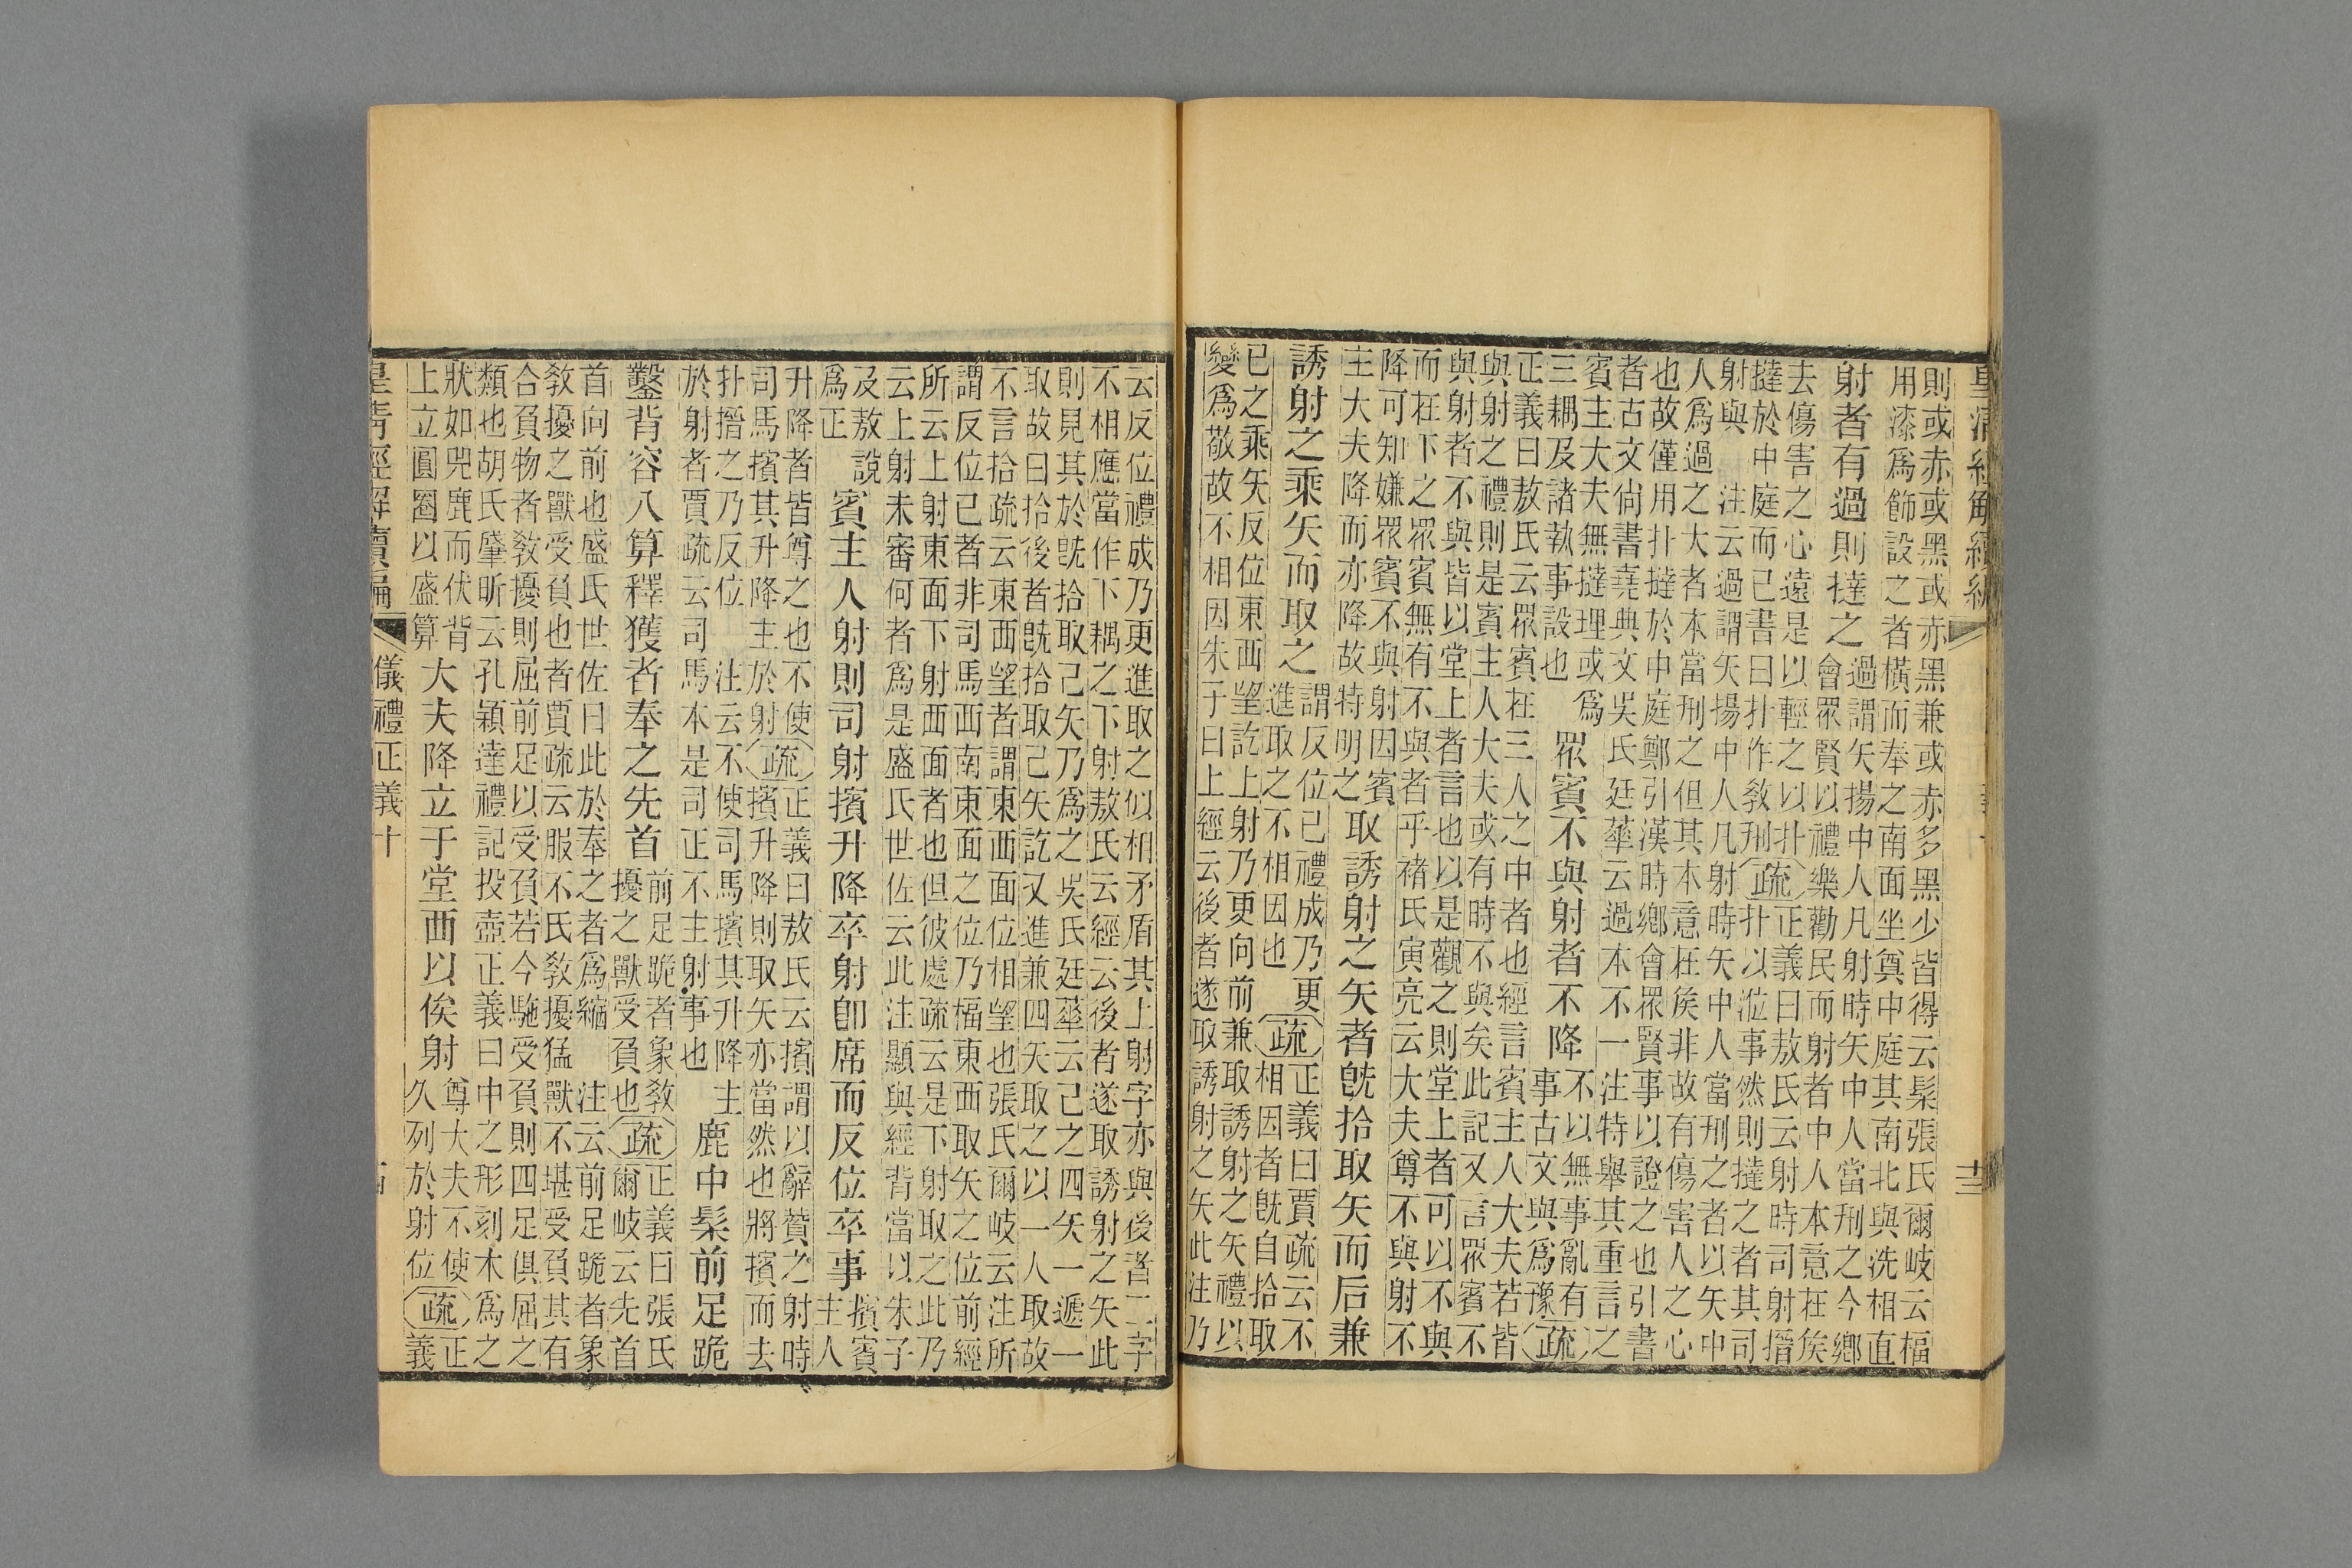 皇清經解續編
十三
則或赤或黑或亦黑兼或赤多黑少皆得云髹張氏爾岐云楅
用漆爲飾設之者橫而奉之南面坐奠中庭其南北與洗相直
射者有過則撻之
過謂矢揚中人凡射時矢中人當刑之今鄉
會眾賢以禮樂勸民而射者中人本意在矦
去傷害之心遠是以輕之以扑
撻於中庭而已書曰扑作敎刑
疏
正義曰敖氏云射時司射搢
扑以涖事然則撻之者其司
射與　注云過謂矢揚中人凡射時矢中人當刑之者以矢中
人爲過之大者本當刑之但其本意在矦非故有傷害人之心
也故僅用扑撻於中庭鄭引漢時鄉會眾賢事以證之也引書
者古文尙書堯典文吳氏廷華云過本不一注特舉其重言之
賓主大夫無撻理或爲
三耦及諸執事設也
眾賓不與射者不降
不以無事亂有
事古文與爲豫
疏
正義曰敖氏云眾賓在三人之中者也經言賓主人大夫若皆
與射之禮則是賓主人大夫或有時不與矣此記又言眾賓不
與射者不與皆以堂上者言也以是觀之則堂上者可以不與
而在下之眾賓無有不與者乎褚氏寅亮云大夫尊不與射不
降可知嫌眾賓不與射因賓
主大夫降而亦降故特明之
取誘射之矢者旣拾取矢而后兼
誘射之乘矢而取之
謂反位已禮成乃更
進取之不相因也
疏
正義曰賈疏云不
相因者旣自拾取
已之乘矢反位東西望訖上射乃更向前兼取誘射之矢禮以
變爲敬故不相因朱于曰上經云後者遂取誘射之矢此注乃
云反位禮成乃更進取之似相矛盾其上射字亦與後者二字
不相應當作下耦之下射敖氏云經云後者遂取誘射之矢此
則見其於旣拾取己矢乃爲之吳氏廷華云己之四矢一遞一
取故曰拾後者旣拾取己矢訖又進兼四矢取之以一人取故
不言拾疏云東西望者謂東西面位相望也張氏爾岐云注所
謂反位已者非司馬西南東面之位乃楅東西取矢之位前經
所云上射東面下射西面者也但彼處疏云是下射取之此乃
云上射未審何者爲是盛氏世佐云此注顯與經背當以朱子
及敖說
爲正
賓主人射則司射擯升降卒射卽席而反位卒事
擯賓
主人
升降者皆尊之也不使
司馬擯其升降主於射
疏
正義曰敖氏云擯謂以辭贊之射時
擯升降則取矢亦當然也將擯而去
扑搢之乃反位　注云不使司馬擯其升降主
於射者賈疏云司馬本是司正不主射事也
鹿中髹前足跪
鑿背容八算釋獲者奉之先首
前足跪者象敎
擾之獸受負也
疏
正義曰張氏
爾岐云先首
首向前也盛氏世佐曰此於奉之者爲縮　注云前足跪者象
敎擾之獸受負也者賈疏云服不氏敎擾猛獸不堪受負其有
合負物者敎擾則屈前足以受負若今駞受負則四足俱屈之
類也胡氏肇昕云孔穎達禮記投壺正義曰中之形刻木爲之
狀如兕鹿而伏背
上立圓圈以盛算
大夫降立于堂西以俟射
尊大夫不使
久列於射位
疏
正
義
皇清經解續編
儀禮正義十